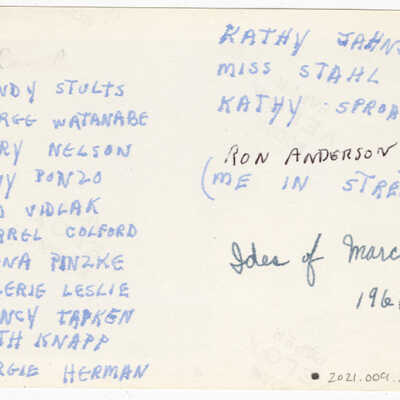 NDY STULTS
RGE WATANABE
RY NELSON
Y PONZO
D VIDLAK
REL COLFORD
NA PINZKE
LERIE LESLIE
NCY TAPKEN
TH KNAPP
RGIE HERMAN
KATHY JAHNS
MISS STAHL
KATHY SPROA
RON ANDERSON
(ME IN STRE
Ides of Marc
196
2021.009.